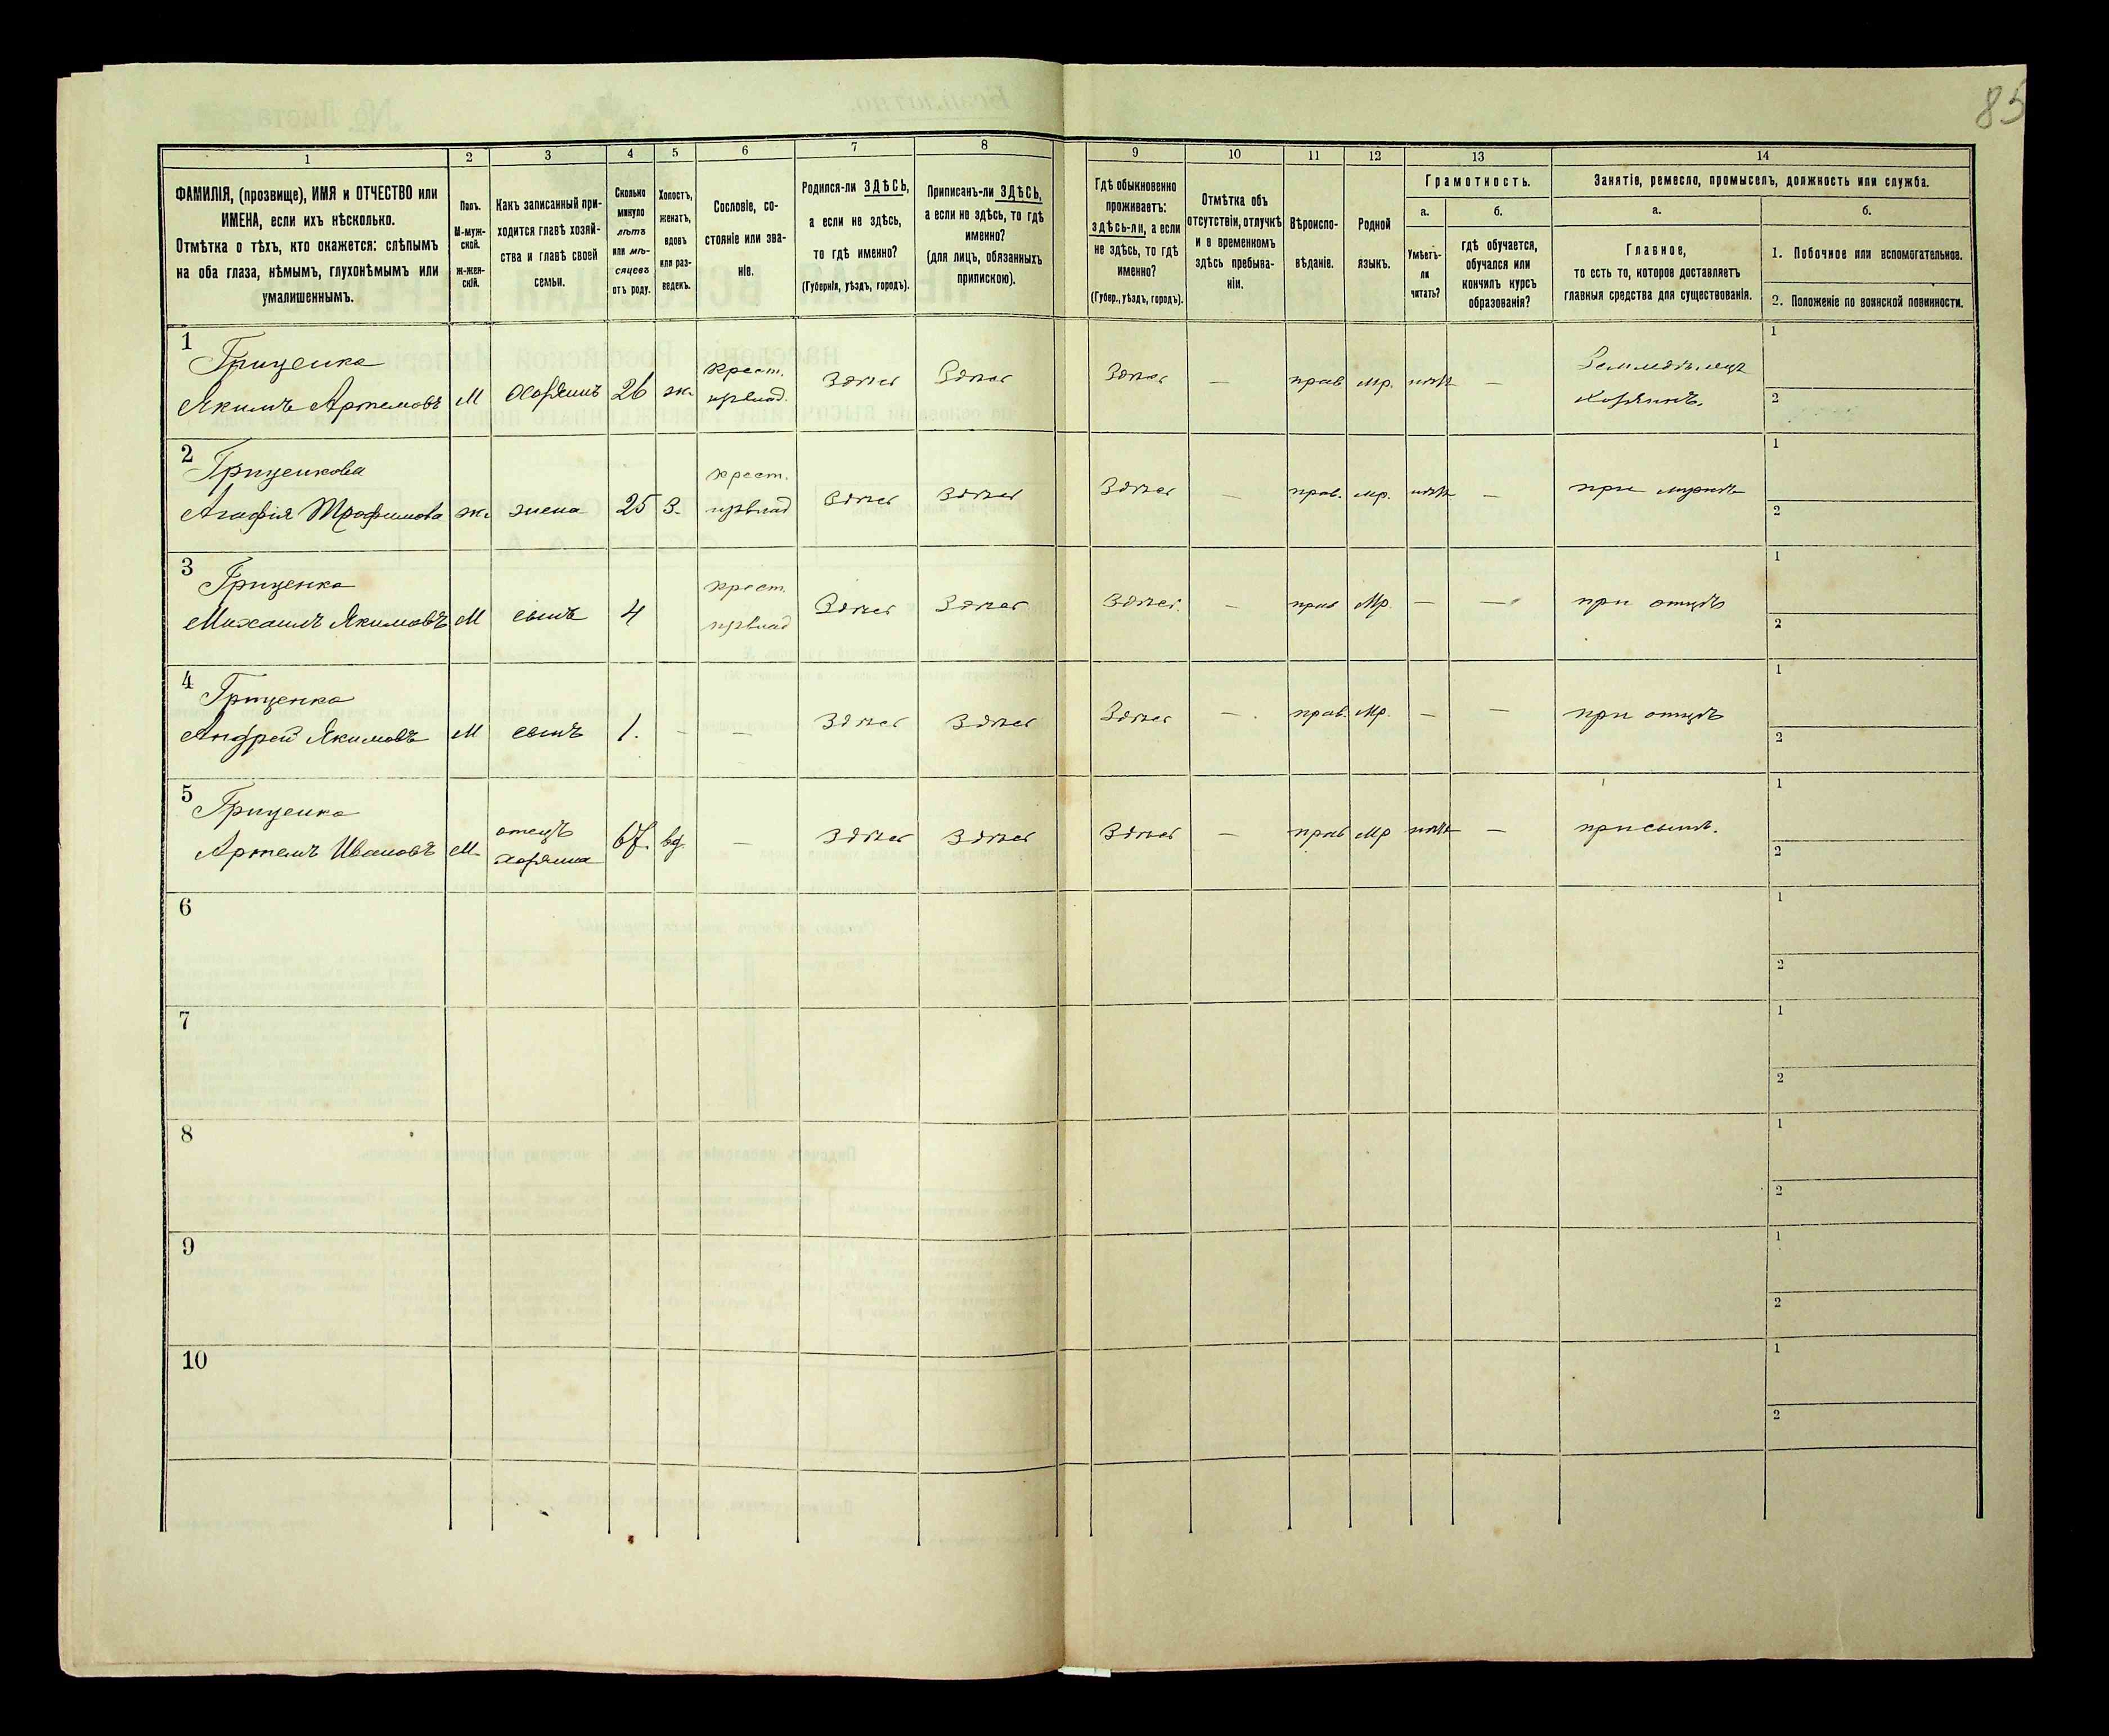 85
1 2 3 4 5 6 7 8 9 10 11 12 13 14
ФАМИЛІЯ, (прозвище), ИМЯ и ОТЧЕСТВО или
ИМЕНА, если ихъ нѣсколько.
Отмѣтка о тѣхъ, кто окажется: слѣпымъ
на оба глаза, нѣмымъ, глухонѣмымъ или
умалишеннымъ.
Полъ.
М-муж-
ской.
Ж-жен-
скій.
Какъ записанный при-
ходится главѣ хозяй-
ства и главѣ своей
семьи.
Сколько
минуло
лѣтъ
или мѣ-
сяцевъ
отъ роду.
Холостъ,
женатъ,
вдовъ
или раз-
веденъ.
Сословіе, со-
стояніе или зва-
ніе.
Родился-ли ЗДѢСЬ,
а если не здѣсь,
то гдѣ именно?
(Губернія, уѣздъ, городъ).
Приписанъ-ли ЗДѢСЬ,
а если не здѣсь, то гдѣ
именно?
(для лицъ, обязанныхъ
припискою).
Гдѣ обыкновенно
проживаетъ:
здѣсь-ли, а если
не здѣсь, то гдѣ
именно?
(Губер., уѣздъ, городъ).
Отмѣтка объ
отсутствіи, отлучкѣ
и о временномъ
здѣсь пребыва-
ніи.
Вѣроиспо-
вѣданіе.
Родной
языкъ.
Грамотность.
а.
Умѣетъ-
ли
читать?
б.
гдѣ обучается,
обучался или
кончилъ курсъ
образованія?
Занятіе, ремесло, промыселъ, должность или служба.
а.
Главное,
то есть то, которое доставляетъ
главныя средства для существованія.
б.
1. Побочное или вспомогательное.
2. Положеніе по воинской повинности.
1 Гриценко 1
Якимъ Артемовъ М хозяинъ 26 ж. крест. Здѣсь Здѣсь Здѣсь — прав. мр. нѣтъ — Земледѣлецъ
хозяинъ. 2
2 Гриценкова 1
Агафія Трофимова ж. жена 25 З. крест. Здѣсь Здѣсь Здѣсь — прав. мр. нѣтъ — при мужѣ
2
3 Гриценко 1
Михаилъ Якимовъ М сынъ 4 крест. Здѣсь Здѣсь Здѣсь. — прав Мр. — — при отцѣ
2
4 Гриценко 1
Андрей Якимовъ М сынъ 1. — — Здѣсь Здѣсь Здѣсь — прав. Мр. — — при отцѣ
2
5 Гриценко 1
Артемъ Ивановъ М. отецъ
хозяина 67. вд. — Здѣсь Здѣсь Здѣсь — прав Мр нѣтъ — при сынѣ.
2
6 1
2
7 1
2
8 1
2
9 1
2
10 1
2